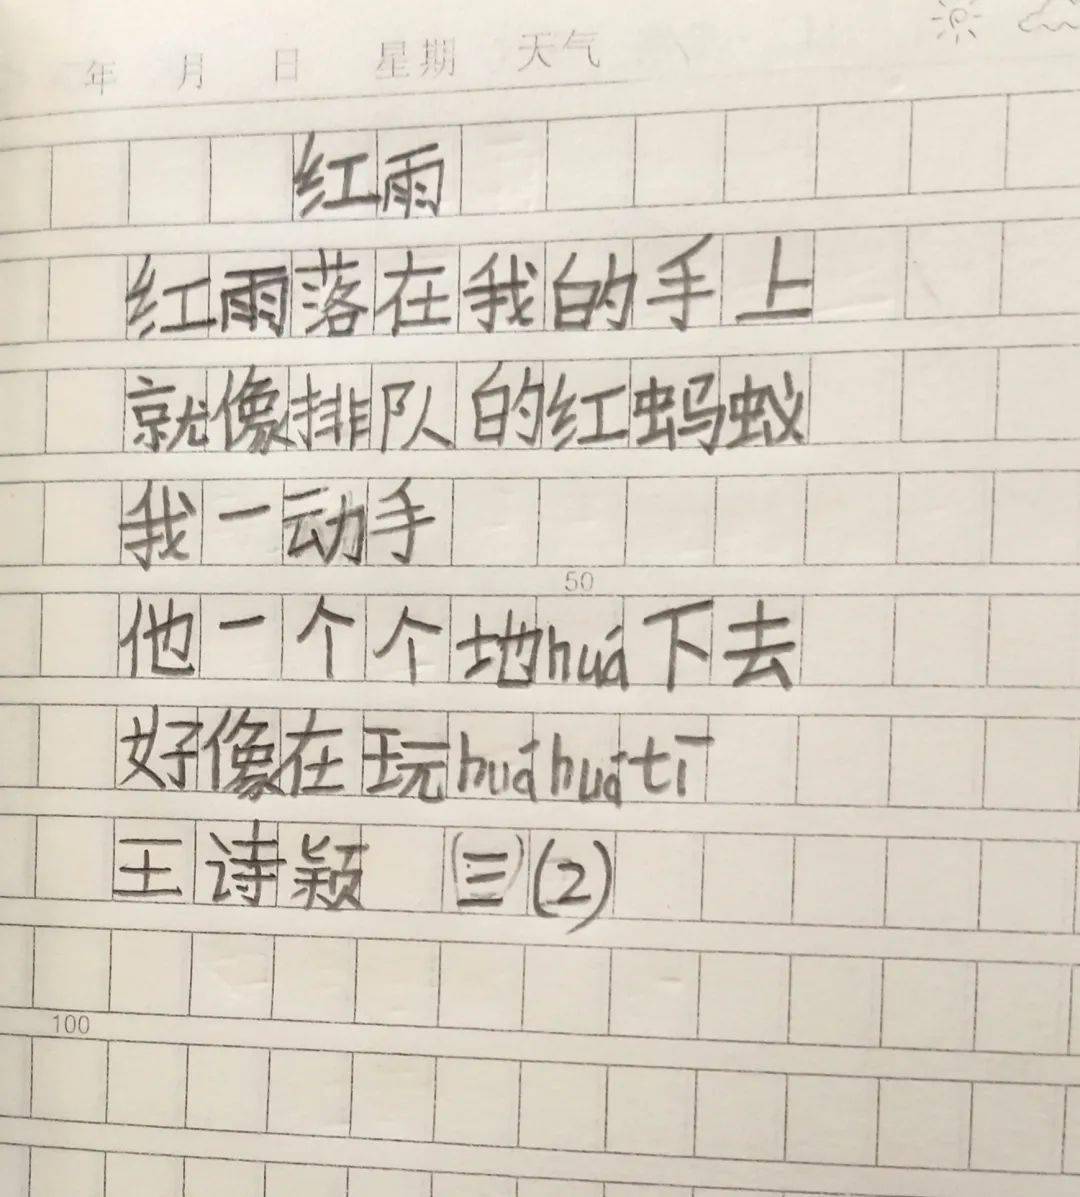 年 月 日 星期 天气
红雨
红雨落在我的手上
就像排队的红蚂蚁
我一动手
50
他一个个地huá下去
好像在玩huáhuátī
王诗颖 (三)(2)
100